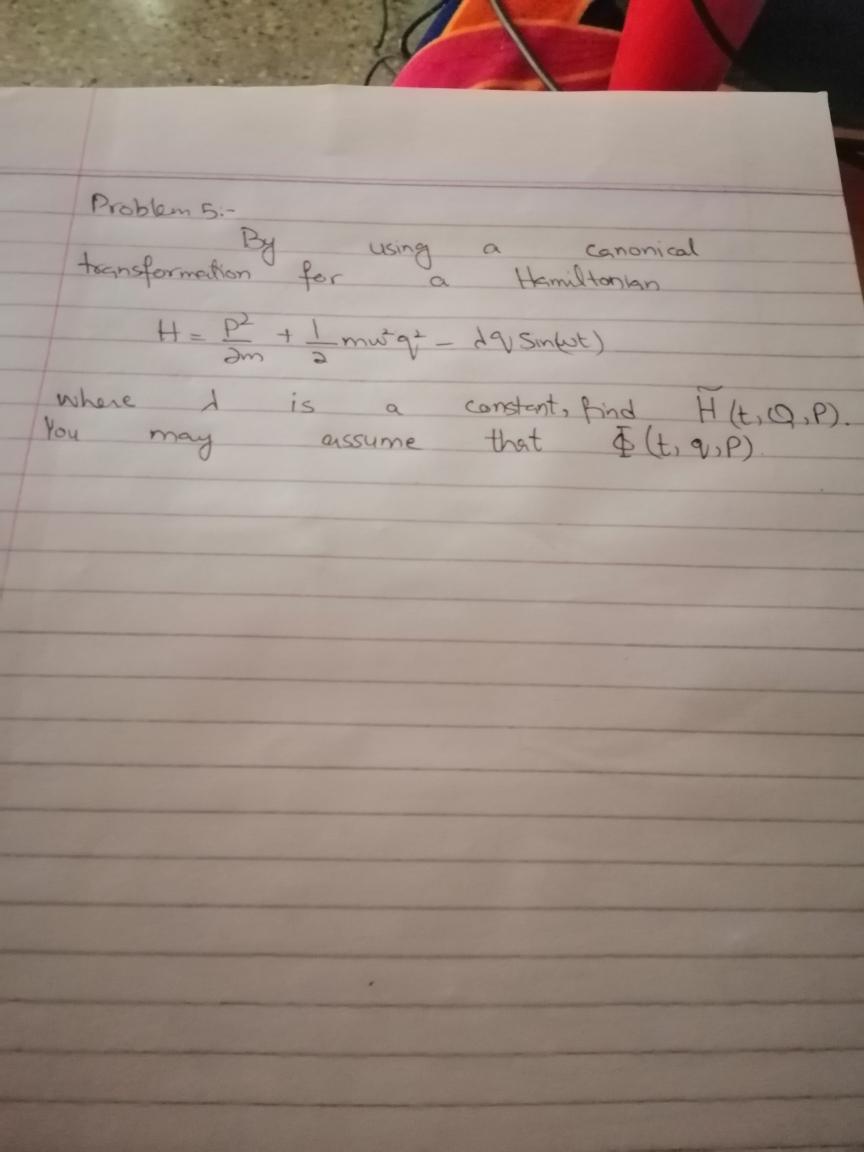 Problem 5:-
By using a canonical
transformation for a Hamiltonian
H = p²/2m + 1/2 mω²q² - λq Sin(ωt)
where λ is a constant, find H̃(t,Q,P).
You may assume that Φ(t,q,P).